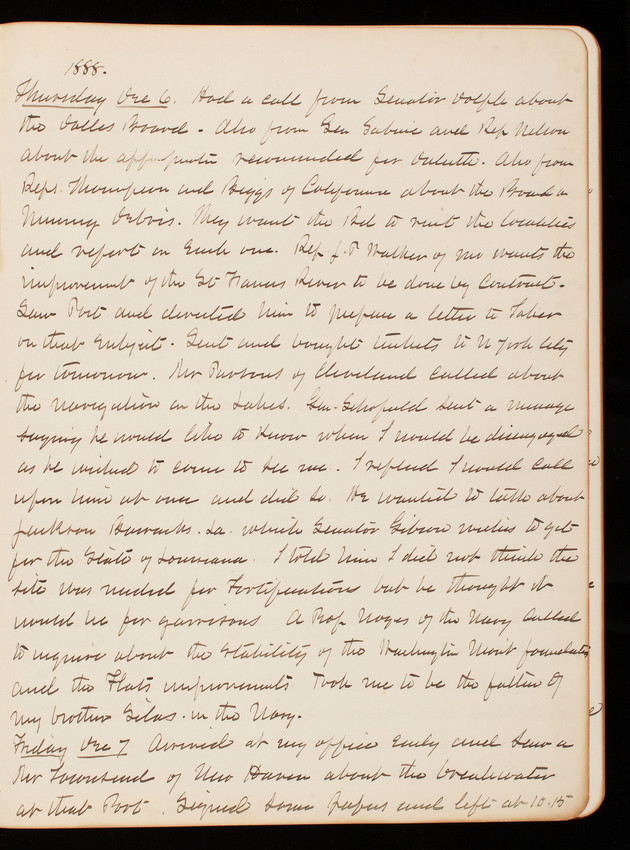 1888.
Thursday Dec 6. Had a call from Senator Dolph about
the Dalles Board - Also from Gen Sabin and Rep Nelson
about the recommended for Duluth. Also from
Reps. Thompson and Biggs of California about the Board on
Mining Debris. They want the Bd to visit the localities
and report on each one. Rep. J. P. Walker of Mo wants the
improvement of the St Francis River to be done by Contract -
Saw Post and directed him to prepare a letter to Taber
on that subject - Sent and bought tickets to N York City
for tomorrow. Mr Parsons of Cleveland called about
the navigation on the Lakes. Gen. Schofield sent a message
saying he would like to know when I would be disengaged
as he wished to come to see me. I replied I would call
upon him at once and did so. He wanted to talk about
Jackson Barracks. La. which Senator Gibson wishes to get
for the State of Louisiana. I told him I did not think the
site was needed for Fortifications but he thought it
would be for garrisons A Prof Noyes of the Navy called
to inquire about the stability of the Washington Mont foundation
and the Flats improvements Took me to be the father of
my brother Silas. in the Navy.
Friday Dec 7 Arrived at my office early and saw a
Mr Townsend of New Haven about the breakwater
at that Port. Signed some papers and left at 10.15